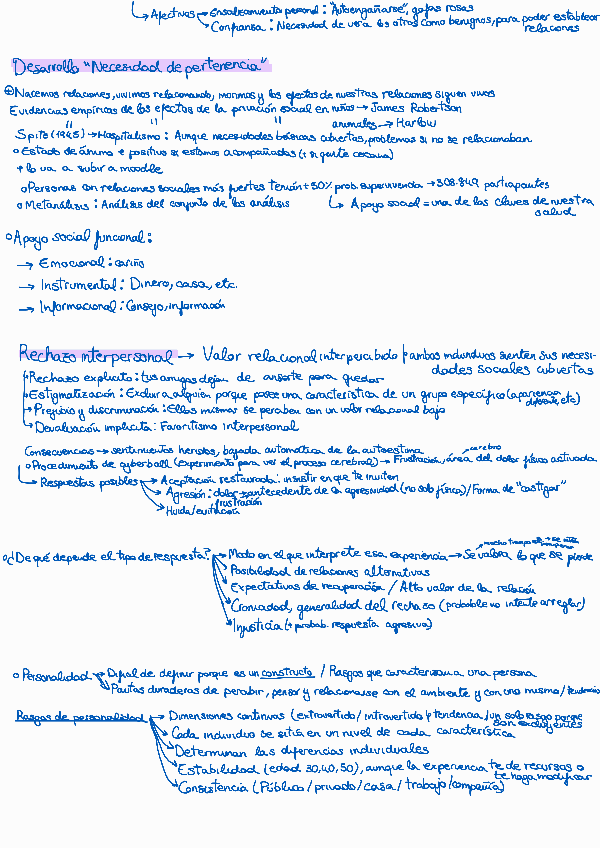 ↳ Afectivas → Ensalzamiento personal: "Autoengañarse", gafas rosas
→ Confianza: Necesidad de ver a los otros como benignos, para poder establecer relaciones
Desarrollo "Necesidad de pertenencia"
Nacemos relaciones, vivimos relacionando, morimos y los efectos de nuestras relaciones siguen vivos
Evidencias empíricas de los efectos de la privación social en niños → James Robertson
" " " animales → Harlow
Spitz (1945) → Hospitalismo: Aunque necesidades básicas abiertas, problemas si no se relacionaban
o Estado de ánimo + positivo si estamos acompañados (+ si gente cercana)
+ lo va a subir a moodle
o Personas con relaciones sociales más fuertes tenían +50% prob. supervivencia → 308.849 participantes
o Metanálisis: Análisis del conjunto de los análisis ↳ Apoyo social = una de las claves de nuestra salud
o Apoyo social funcional:
→ Emocional: cariño
→ Instrumental: Dinero, casa, etc.
→ Informacional: Consejo, información
Rechazo interpersonal → Valor relacional interpercibido / ambos individuos sienten sus necesidades sociales cubiertas
Rechazo explícito: tus amigas dejan de avisarte para quedar
Estigmatización: Excluir a alguien porque posee una característica de un grupo específico (apariencia diferente, etc)
Prejuicio y discriminación: Ellos mismos se perciben con un valor relacional bajo
Devaluación implícita: Favoritismo interpersonal
Consecuencias → sentimientos heridos, bajada automática de la autoestima
o Procedimiento de cyberball (experimento para ver el proceso cerebral) → Frustración, área del dolor físico activada cerebro
↳ Respuestas posibles → Aceptación restaurada: insistir en que te inviten
Agresión: dolor → antecedente de la agresividad (no solo físico) / Forma de "castigar"
frustración
Huida/evitación
o ¿De qué depende el tipo de respuesta? → Modo en el que interprete esa experiencia → Se valora lo que se pierde
Posibilidad de relaciones alternativas
Expectativas de recuperación / Alto valor de la relación
Cronicidad, generalidad del rechazo (probable no intente arreglar)
Injusticia (+ probab. respuesta agresiva)
o Personalidad → Difícil de definir porque es un constructo / Rasgos que caracterizan a una persona
Pautas duraderas de percibir, pensar y relacionarse con el ambiente y con uno mismo / tendencia
Rasgos de personalidad → Dimensiones continuas (extrovertido/introvertido y tendencia / un solo rasgo porque son excluyentes
Cada individuo se sitúa en un nivel de cada característica
Determinan las diferencias individuales
Estabilidad (edad 30, 40, 50), aunque la experiencia te de recursos o te haga modificar
Consistencia (Público/privado/casa/trabajo/compañía)